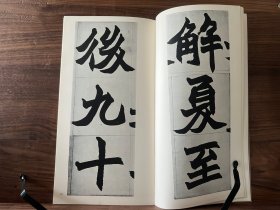 解夏至
後九十